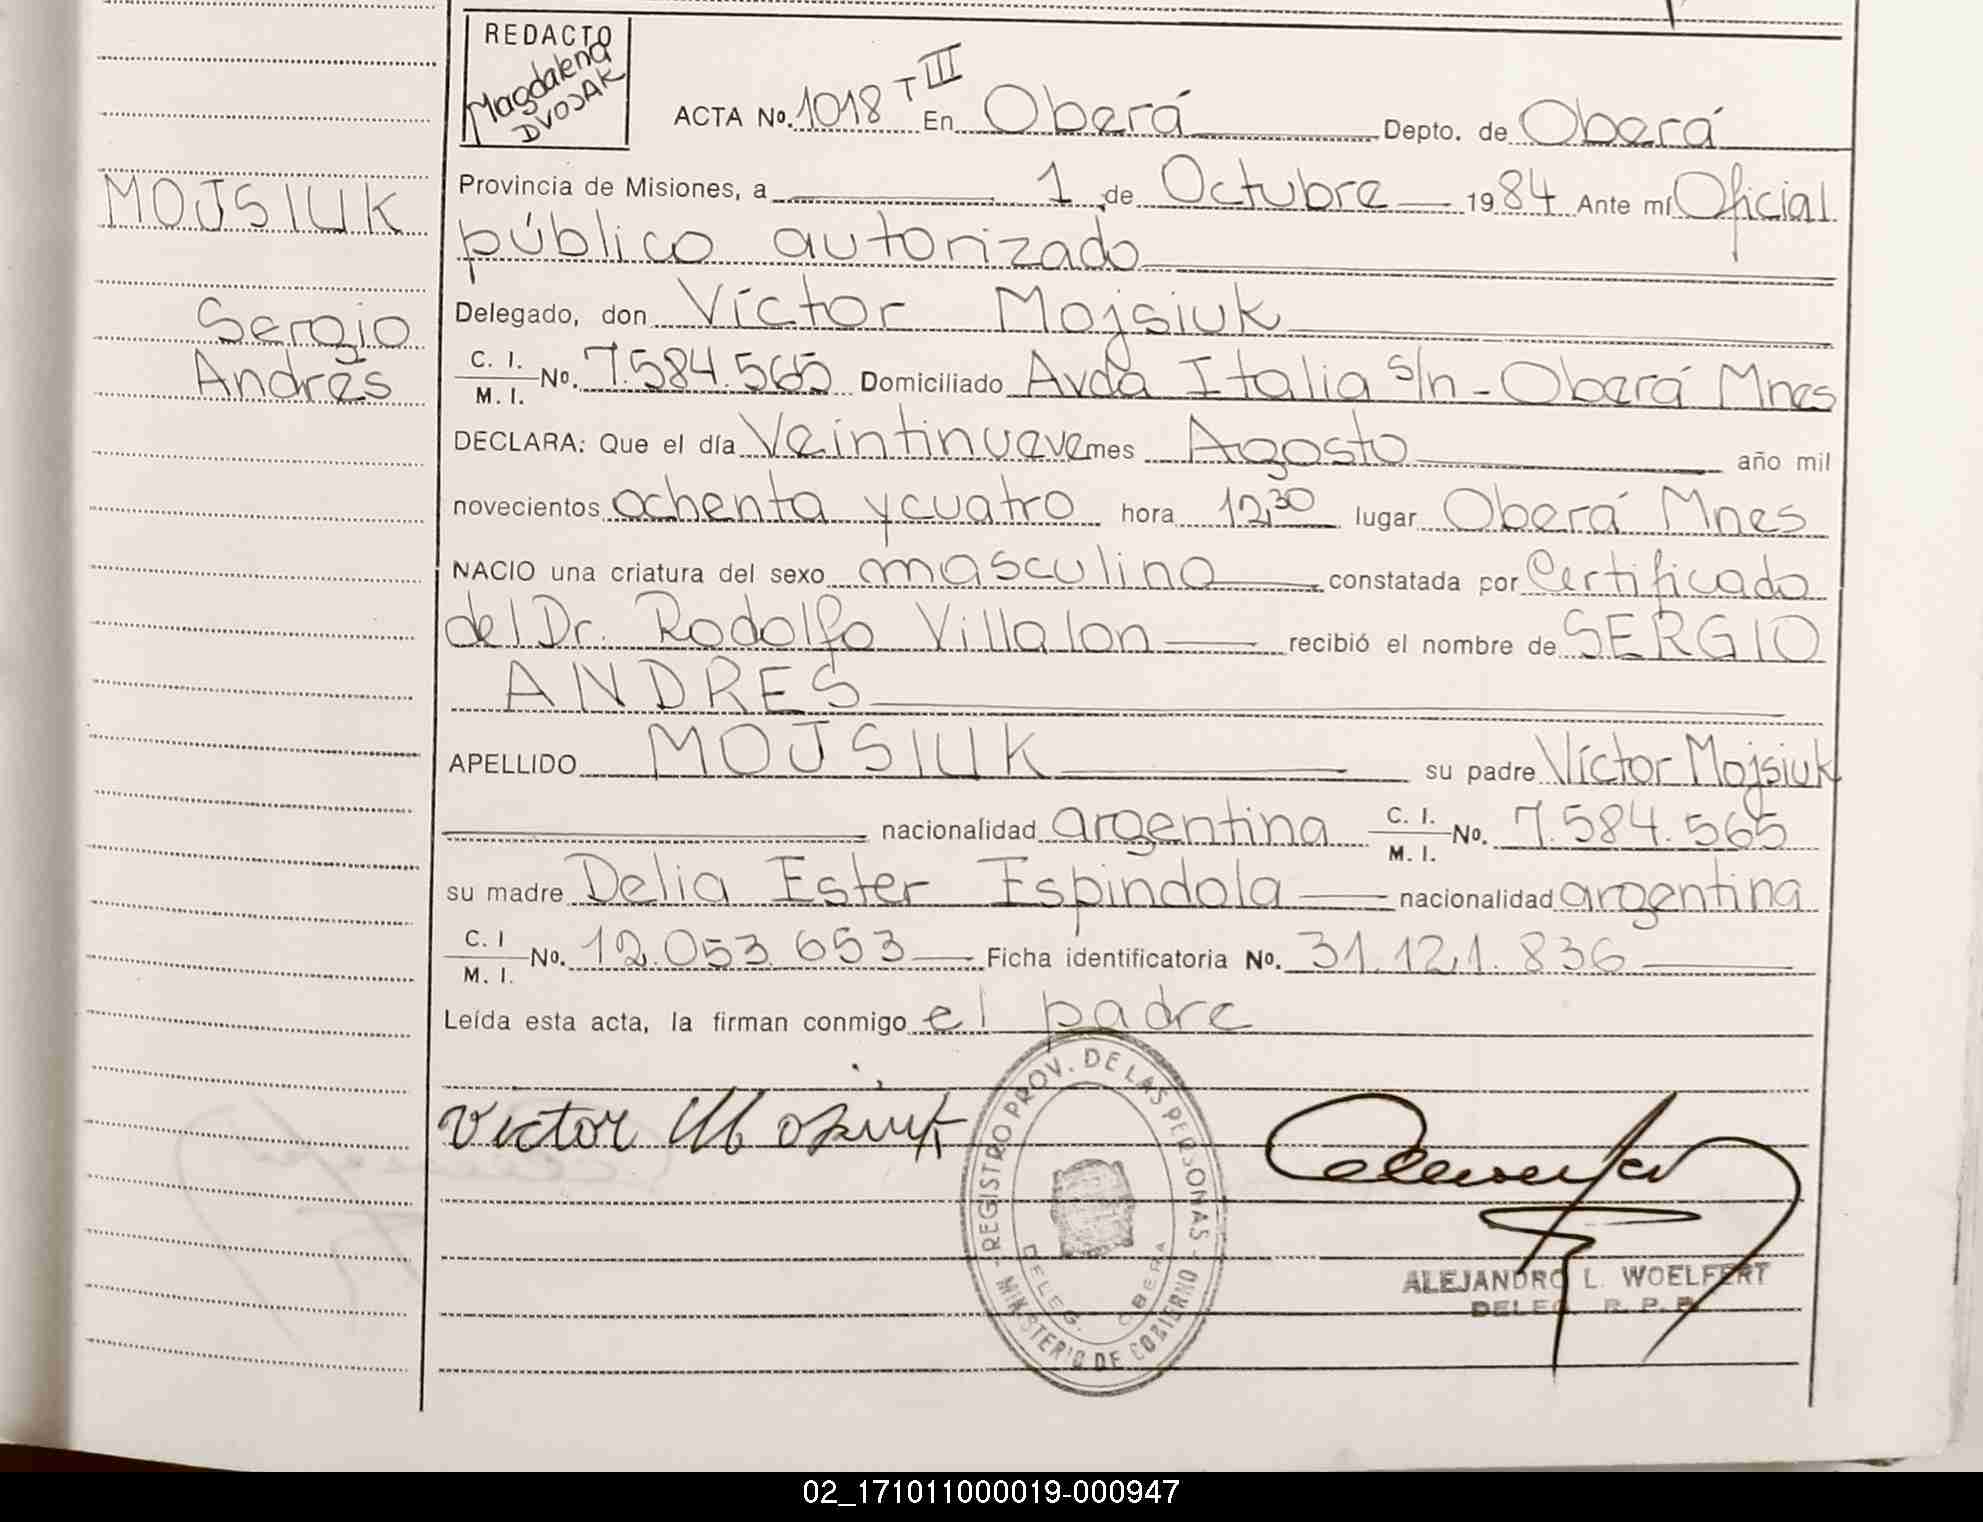 REDACTO
Magdalena
DVOJAK
ACTA No. 1018 T III En Oberá Depto. de Oberá
Provincia de Misiones, a 1 de Octubre 1984 Ante mí Oficial
público autorizado
Delegado, don Víctor Mojsiuk
C. I.
M. I. No. 7.584.565 Domiciliado Avda Italia s/n - Oberá Mnes
DECLARA: Que el día Veintinueve mes Agosto año mil
novecientos ochenta y cuatro hora 12,30 lugar Oberá Mnes
NACIO una criatura del sexo masculino constatada por Certificado
del Dr. Rodolfo Villalon recibió el nombre de SERGIO
ANDRES
APELLIDO MOJSIUK su padre Víctor Mojsiuk
nacionalidad argentina C. I. M. I. No. 7.584.565
su madre Delia Ester Espindola nacionalidad argentina
C. I M. I. No. 12.053.653 Ficha identificatoria No. 31.121.836
Leída esta acta, la firman conmigo el padre
MOJSIUK
Sergio
Andrés
Victor Mojsiuk
REGISTRO PROV. DE LAS PERSONAS - MINISTERIO DE GOBIERNO -
DELEG. OBERA
ALEJANDRO L. WOELFERT
DELEG. R. P. P.
02_171011000019-000947